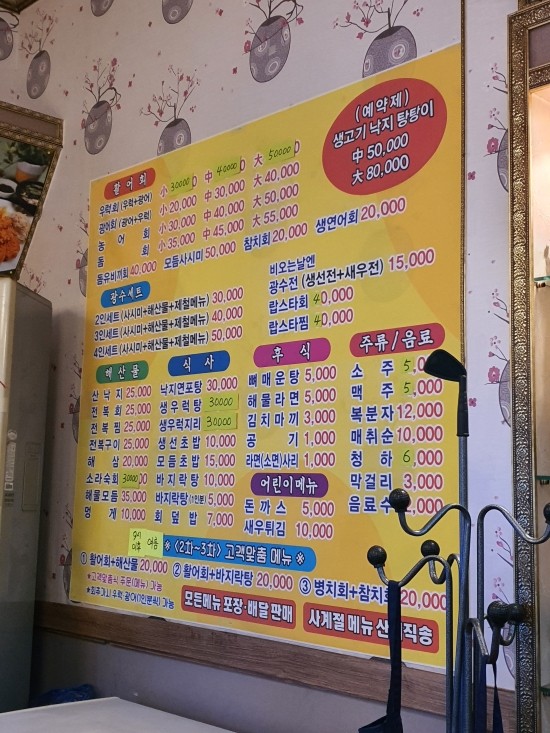 (예약제)
생고기 낙지 탕탕이
中 50,000
大 80,000
활어회
우럭회 (우럭+광어) 小 30000 中 40000 大 50000
광어회 (광어+우럭) 小 20,000 中 30,000 大 40,000
농어회 小 30,000 中 40,000 大 50,000
돔회 小 35,000 中 45,000 大 55,000
돔유비끼회 40,000 모듬사시미 50,000 참치회 20,000 생연어회 20,000
광수세트
2인세트 (사시미+해산물+제철메뉴) 30,000
3인세트 (사시미+해산물+제철메뉴) 40,000
4인세트 (사시미+해산물+제철메뉴) 50,000
비오는날엔
광수전 (생선전+새우전) 15,000
랍스타회 40,000
랍스타찜 40,000
해산물
산낙지 25,000
전복회 25,000
전복찜 25,000
전복구이 25,000
해삼 20,000
소라숙회 30000
해물모듬 35,000
멍게 10,000
식사
낙지연포탕 30,000
생우럭탕 30000
생우럭지리 30000
생선초밥 10,000
모듬초밥 15,000
바지락탕 10,000
바지락탕 (1인분) 5,000
회덮밥 7,000
후식
뼈매운탕 5,000
해물라면 5,000
김치마끼 3,000
공기 1,000
라면(소면)사리 1,000
어린이메뉴
돈까스 5,000
새우튀김 10,000
주류/음료
소주 5,000
맥주 5,000
복분자 12,000
매취순 10,000
청하 6,000
막걸리 3,000
음료수 ,000
※ <2차~3차> 고객맞춤 메뉴 ※
① 활어회+해산물 20,000 ② 활어회+바지락탕 20,000 ③ 병치회+참치회 20,000
*고객맞춤식 주문(메뉴) 가능
*회추가시 우럭·광어(1인분씩) 가능
모든메뉴 포장·배달 판매
사계절 메뉴 산지직송